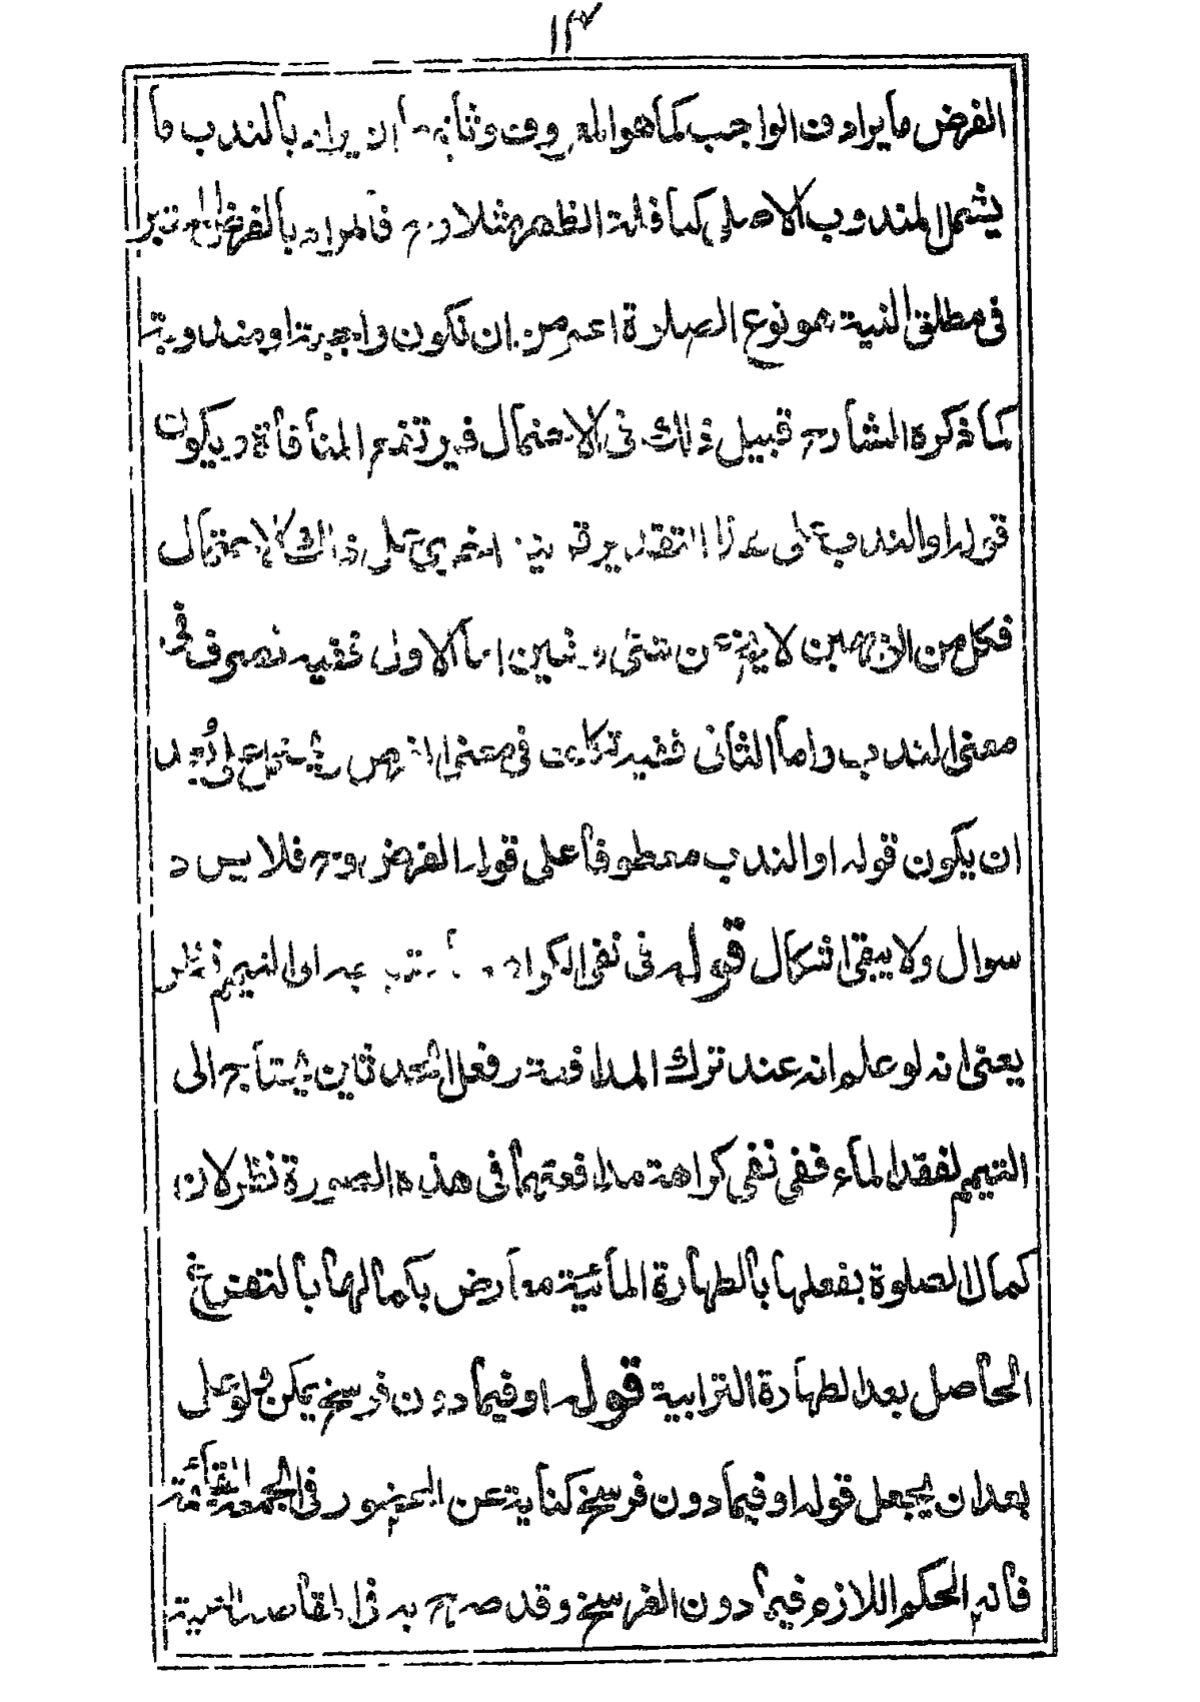 ١٣
الفرض ما يرادف الواجب كما هو المعروف وثانيهما ان يراد بالندب ما
يشمل المندوب الاصلي كنافلة الظهر مثلا فالمراد بالفرض
في مطلق النية هو نوع الصلوة اعم من ان تكون واجبة او مندوبة
كما ذكره الشارح قبيل ذلك في الاحتمال فيرتفع المنافاة ويكون
قوله او الندب على هذا التقدير قرينة اخرى على ذلك الاحتمال
فكل من الوجهين لا يخلو عن شيء اما الاول ففيه تصرف في
معنى الندب واما الثاني ففيه تكلف في معنى الفرض
ان يكون قوله او الندب معطوفا على قوله الفرض وح فلا يرد
سوال ولا يبقى اشكال قوله في نفي الكراهة الى التيمم نظر
يعنى انه لو علم انه عند ترك المدافعة وفعل الحدثين يحتاج الى
التيمم لفقد الماء ففي نفي كراهة مدافعتهما في هذه الصورة نظر لان
كمال الصلوة بفعلها بالطهارة المائية معارض بكمالها بالتفرغ
الحاصل بعد الطهارة الترابية قوله او فيما دون فرسخ يمكن
بعد ان يجعل قوله او فيما دون فرسخ كناية عن الحضور في الجمعة
فانه الحكم اللازم فيما دون الفرسخ وقد صرح به في المقاصد العلية